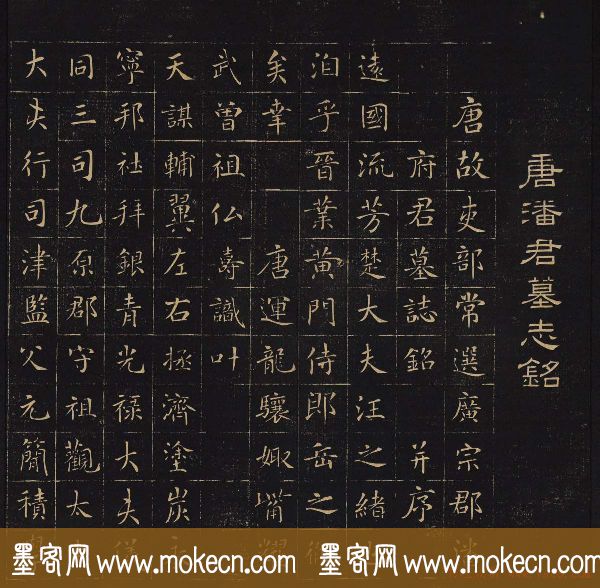 唐潘君墓志銘
唐故吏部常選廣宗郡
府君墓誌銘 并序
遠國流芳楚大夫汪之緒
洎乎晉業黃門侍郎岳之
矣幸 唐運龍驤娵觜
武曾祖仏壽識叶
天謀輔翼左右拯濟塗炭
寧邦社拜銀青光祿大夫
同三司九原郡守祖觀太
大夫行司津監父元簡積
墨客网 www.mokecn.com 墨客网 www.mokecn.com